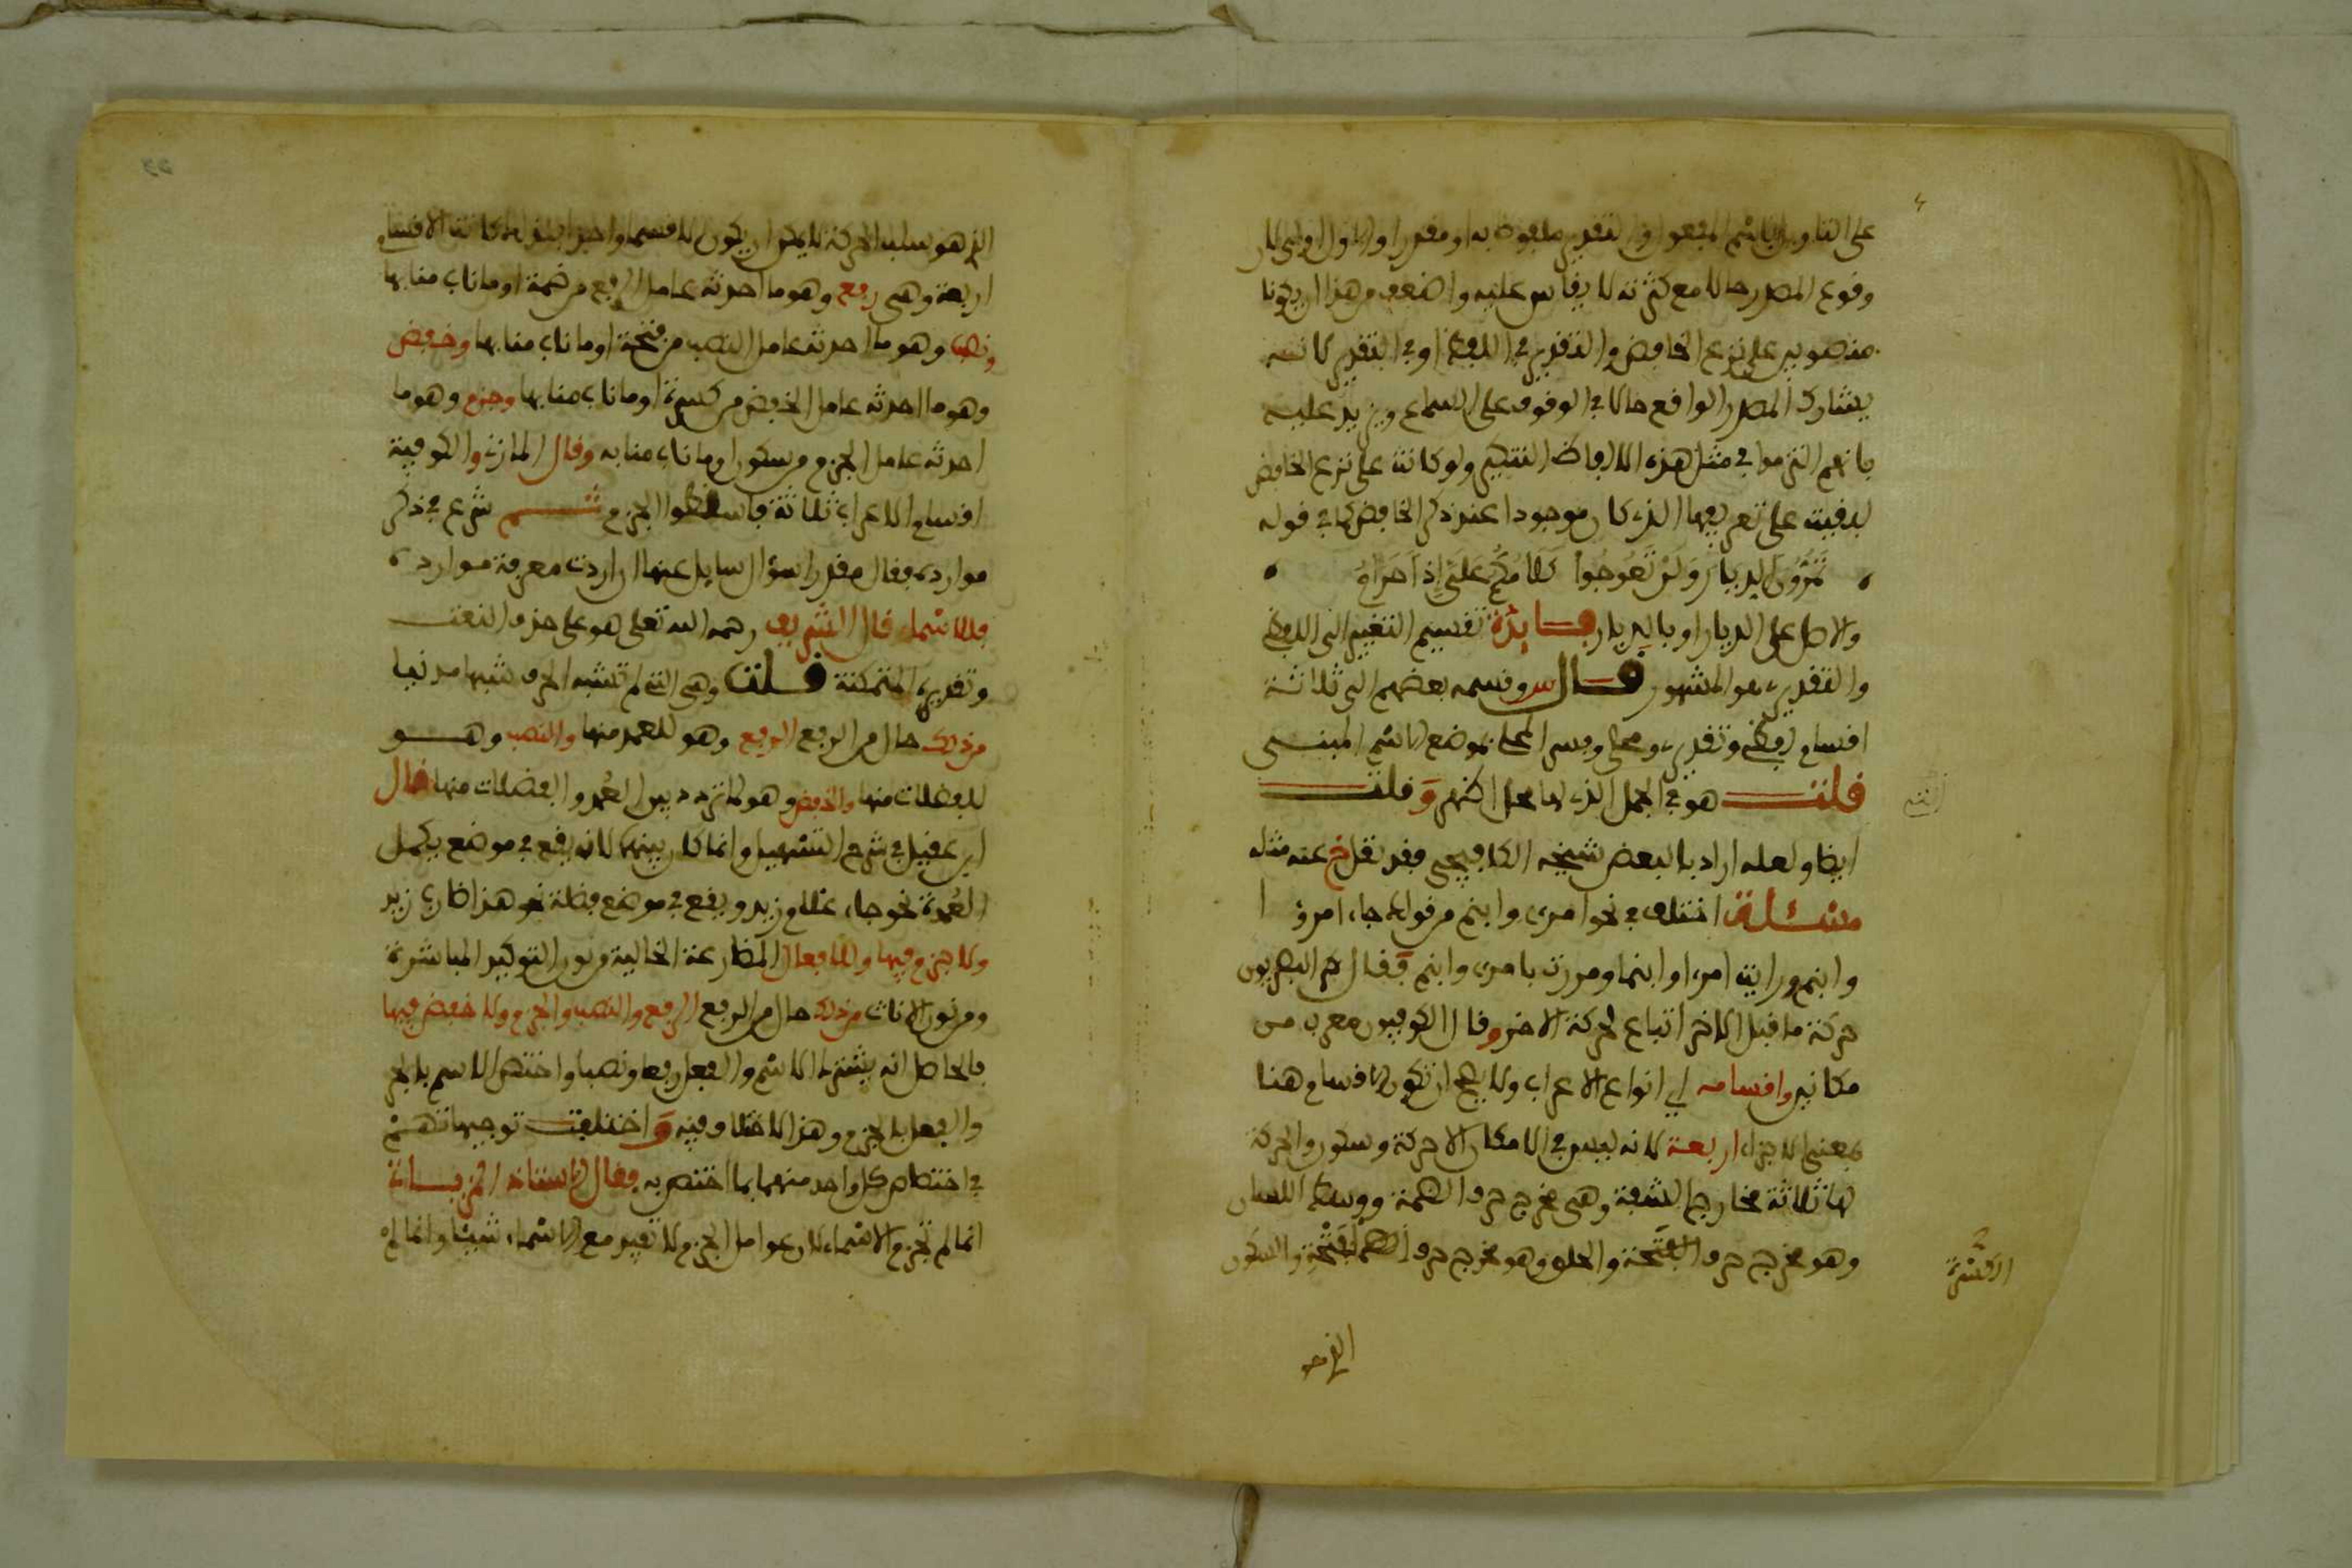 على التاويل باسم المفعول والتقدير ملفوظا به او مقدرا والاول اولى لان
وقوع المصدر حالا مع كثرته لا يقاس عليه واضعف من هذا ان يكونا
منصوبين على نزع الخافض والتقدير في اللفظ او في التقدير لانه
يشارك المصدر الواقع حالا في الوقوف على السماع ويزيد عليه
بانهم التزموا في مثل هذه الالفاظ التنكير ولو كانت على نزع الخافض
لبقيت على تعريفها الذي كان موجودا عند ذكر الخافض كما في قوله
تَمُرُّونَ الديارَ وَلَمْ تَعُوجُوا كَلَامُكُمُ عَلَيَّ إِذًا حَرَامُ
والاصل على الديار او بالديار فائدة تقسيم التغيير الى اللفظي
والتقديري هو المشهور قال س وقسمه بعضهم الى ثلاثة
اقسام لفظي وتقديري ومحلي وفسر المحلي بموضع الاسم المبني
قلت هو في الجمل الذي لها محل اكثر وَقلت
ايضا ولعله اراد بالبعض شيخه الكافيجي فقد نقل خ عنه مثله
مسئلة اختلف في نحو امرئ وابنم من قولك جاء امرؤ
وابنم ورايت امرءا وابنما ومررت بامرئ وابنم فَقال البصريون
حركة ما قبل الاخر اتباع لحركة الاخر وقال الكوفيون معرب من
مكانين واقسامه اي انواع الاعراب ولا يصح ان تكون الاقسام هنا
بمعنى الاجزاء اربعة لانه ليس في الامكان الا حركة وسكون والحركة
لها ثلاثة مخارج الشفة وهي مخرج حرف الضمة ووسط اللسان
وهو مخرج حرف الفتحة والحلق وهو مخرج حرف الفتحة والسكون
الكسرة
الذي هو
الذي هو سلب الحركة لا يمكن ان يكون الا قسما واحدا فلذلك كانت الاقسام
اربعة وهي رفع وهو ما احدثه عامل الرفع من ضمة او ما ناب منابها
ونصب وهو ما احدثه عامل النصب من فتحة او ما ناب منابها وخفض
وهو ما احدثه عامل الخفض من كسرة او ما ناب منابها وجزم وهو ما
احدثه عامل الجزم من سكون او ما ناب منابه وقال المازني والكوفية
اقسام الاعراب ثلاثة فاسقطوا الجزم ثم شرع في ذكر
موارده فقال مقدرا سؤال سايل عنها ان اردت معرفة موارده
فللاسماء قال الشريف رحمه الله تعلى هو على حذف النعت
وتقديره المتمكنة قلت وهي التي لم تشبه الحرف شبها مدنيا
من ذلك حال من الرفع الرفع وهو للعمد منها والنصب وهو
للفضلات منها والخفض وهو لما تردد بين العُمد والفضلات منها قال
ابن عقيل في شرح التسهيل وانما كان بينهما لانه يقع في موضع يكمل
العُمدة نحو جاء غلام زيد ويقع في موضع فضلة نحو هذا ضارب زيد
ولا جزم فيها وللافعال المضارعة الخالية من نون التوكيد المباشرة
ومن نون الاناث من ذلك حال من الرفع الرفع والنصب والجزم ولا خفض فيها
فالحاصل انه يشترك الاسم والفعل رفعا ونصبا واختص الاسم بالجر
والفعل بالجزم وهذا لا خلاف فيه وَاختلفت توجيهاتهم
في اختصاص كل واحد منهما بما اختص به فقال الاستاذ
انما لم تجزم الاسماء لان عوامل الجزم لا تفيد مع الاسماء شيئا وانما لم